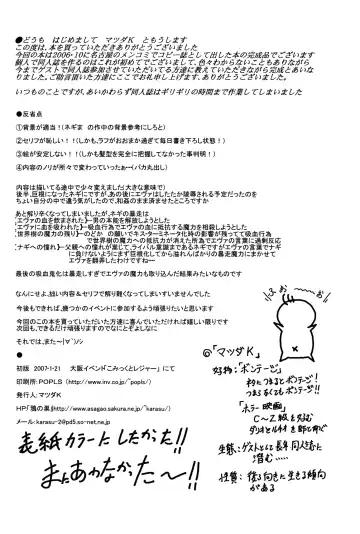 ●どうも はじめまして マツダK ともうします
この度は、本を買っていただきありがとうございました
今回の本は2006・10に名古屋のメンコミでコピー誌として出した本の完成品でございます
個人で同人誌を作るのはこれが初めてでございまして、色々わからないこともありながら
今までゲストで同人誌参加させていただいてる方達に教えていただきながら完成とあいな
りました。ご助言頂いた方達にここでお礼申し上げます、ありがとうございました。
いつものことですが、あいかわらず同人誌はギリギリの時間まで作業してしまいました
●反省点
①背景が適当!(ネギま の作中の背景参考にしろと)
②セリフが恥しい!!(しかも、ラフがおおまか過ぎて毎日書き下ろし状態!)
③絵が安定しない!!(しかも髪型を完全に把握してなかった事判明!)
④内容のノリが所々で変わっていったぁ~(バカ丸出し)
内容は描いてる途中で少々変えました(大きな意味で)
後半、巨根になったネギにですが、あの後にエヴァはしたたか陵辱される予定だったのを
ちょい自分の中で違う気がしたので、和姦のまま済ませたところですか
あと解り辛くなってしまいましたが、ネギの暴走は
【エヴァの血を飲まされた】―男の本能を解放しようとした
【エヴァに血を吸われた】―吸血行為でエヴァの血に抵抗する魔力を相殺しようとした
【世界樹の魔力の残り】―のどか の願いでキスターミネータ化時の影響が残ってて吸血行為
で世界樹の魔力への抵抗力が消えた所為でエヴァの言葉に過剰反応
【ナギへの憧れ】―父親への憧れが富じて、ライバル意識まであるネギですのでエヴァの言葉がナギ
に負けないようにまず巨根化してから溢れんばかりの暴走魔力にまかせて
エヴァを翻弄したわけですねー
最後の吸血鬼化は暴走しすぎてエヴァの魔力も取り込んだ結果みたいなものです
なんにせよ、拙い内容&セリフで解り難くなってしまいすいませんでした
今後もできれば、幾つかのイベントに参加するよう頑張りたいと思います
今回のこの本を買っていただいた方達に喜んでいただければ嬉しい限りです
次回も、できるだけ頑張りますのでなにとぞよしなに
それでは、また~(∀`)ノシ
●
初版 2007・1・21 大阪イベント「こみっくとレジャー」 にて
印刷所:POPLS (http://www.inv.co.jp/~popls/)
発行人:マツダK
HP「鴉の巣」(http://www.asagao.sakura.ne.jp/~karasu/)
メール:karasu-2@pd5.so-net.ne.jp
表紙カラーにしたかった!!
またあわなかた~!!
◎「マツダK」
好物:「ボンテージ」
「ホラー映画」
C~Z級を好む
生態:ゲストとして長年同人誌に
潜む……
性質:後ろ向きに生きる傾向
がある